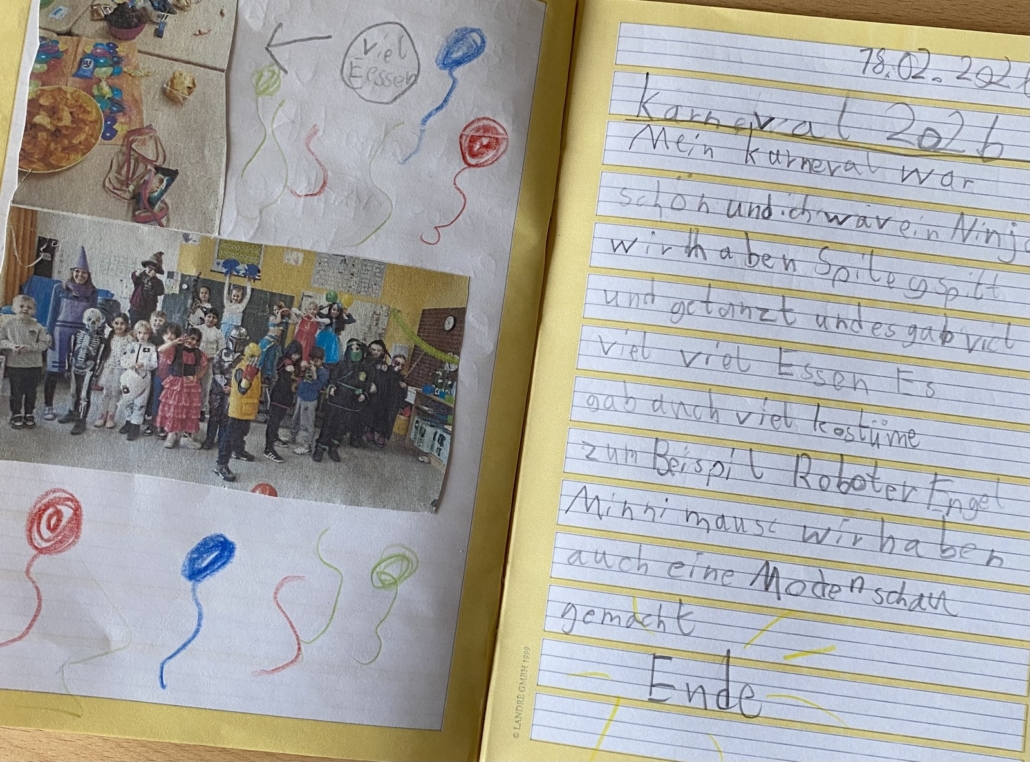 viel
Eessen
18.02.202
Karneval 2026
Mein karneval war
schön und ich war ein Ninj
wir haben Spile gspilt
und getanzt und es gab viel
viel viel Essen Es
gab auch viel kostüme
zum Beispil Roboter Engel
Minni mause wir haben
auch eine Modenschau
gemacht
Ende
© LANDRÉ GMBH 1999